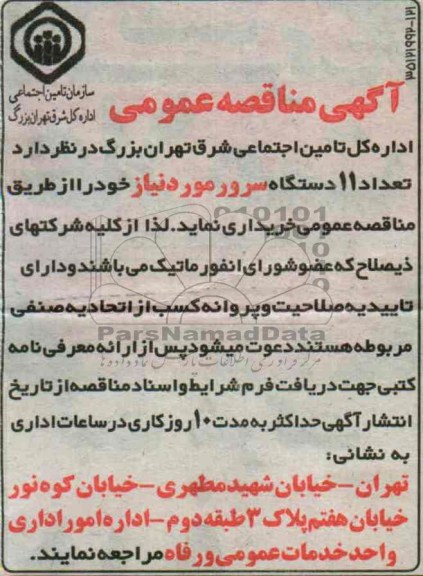 سازمان تامین اجتماعی
اداره کل شرق تهران بزرگ
آگهی مناقصه عمومی
اداره کل تامین اجتماعی شرق تهران بزرگ در نظر دارد
تعداد ۱۱ دستگاه سرور مورد نیاز خود را از طریق
مناقصه عمومی خریداری نماید. لذا از کلیه شرکتهای
ذیصلاح که عضو شورای انفورماتیک می باشند و دارای
تاییدیه صلاحیت و پروانه کسب از اتحادیه صنفی
ParsNamadData
مربوطه هستند دعوت میشود پس از ارائه معرفی نامه
کتبی جهت دریافت فرم شرایط و اسناد مناقصه از تاریخ
انتشار آگهی حداکثر به مدت ۱۰ روز کاری در ساعات اداری
به نشانی:
تهران - خیابان شهید مطهری - خیابان کوه نور
خیابان هفتم پلاک ۳ طبقه دوم - اداره امور اداری
واحد خدمات عمومی و رفاه مراجعه نمایند.